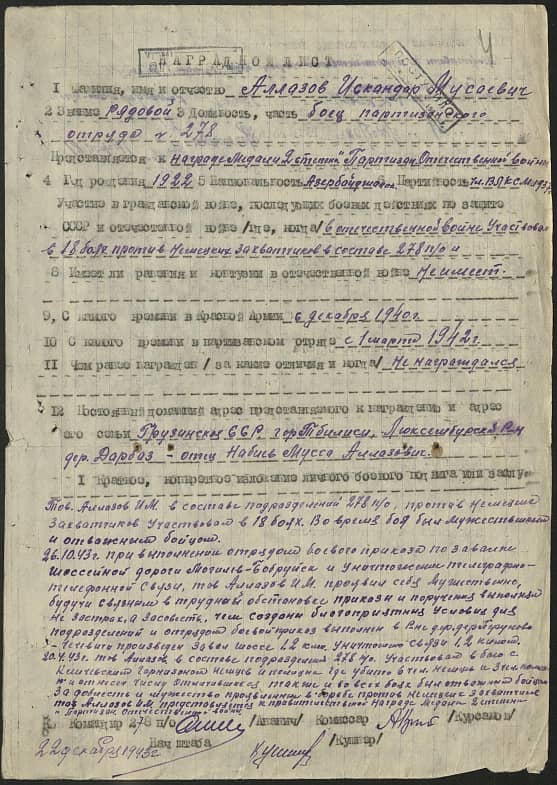 4
НАГРАДНОЙ ЛИСТ
1 Фамилия, имя и отчество Аллазов Искандар Мусаевич
2 Звание Рядовой 3 Должность, часть боец партизанского
отряда № 278
Представляется к награде Медали 2 степени "Партизан Отечественной войны
4 Год рождения 1922 5 Национальность Азербайджанец 6 Партийность чл. ВЛКСМ 1937
Участие в гражданской войне, последующих боевых действиях по защите
СССР и отечественной войне /где, когда/ в отечественной войне Участвовал
в 18 боях против Немецких Захватчиков в составе 278 п/о
8 Имеет ли ранения и контузии в отечественной войне Не имеет.
9, С какого времени в Красной Армии с декабря 1940 г
10 С какого времени в партизанском отряде с 1 марта 1942 г.
11 Чем ранее награжден /за какие отличия и когда/ Не награждался
12 Постоянный домашний адрес представляемого к награждению и адрес
его семьи Грузинская ССР, гор Тбилиси, Люксембургский Р-н
дер. Дарбаз - отец Набиев Мусса Аллазович.
I Краткое, конкретное изложение личного боевого подвига или заслуг
Тов. Аллазов И.М. в составе подразделений 278 п/о, против Немецких
Захватчиков Участвовал в 18 боях. Во время боя был Мужественным
и отважным бойцом.
26.10.43г. при выполнении отрядом боевого приказа по завалке
шоссейной дороги Могилев-Бобруйск и Уничтожению телеграфно-
телефонной Связи, тов Аллазов И.М. проявил себя Мужественно,
будучи связным в трудной обстановке приказы и поручения выполнял
Не За страх, а За совесть, чем создавы благоприятных Условия для
подразделений и отрядом боевой приказ выполнен в Р-не дер.
- Чечевичи произведен Завал шоссе 1,2 клм, Уничтожено связи 1,2 килом.
20.4.43г. тов Аллазов, в составе подразделения 278 п/о. Участвовал в бою с
гарнизоном Немцев и полиции, где убито
также и во всех боях был отважным бойцом
За доблесть и мужество проявленные в борьбе против Немецких Захватчиков
тов Аллазов И.М. представляется к правительственной Награде Медали 2 степени
"Партизан Отечественной войны
Командир 278 п/о /Ананич/ Комиссар /Курсанов/
Нач штаба /Кушнер/
22 декабря 1943г